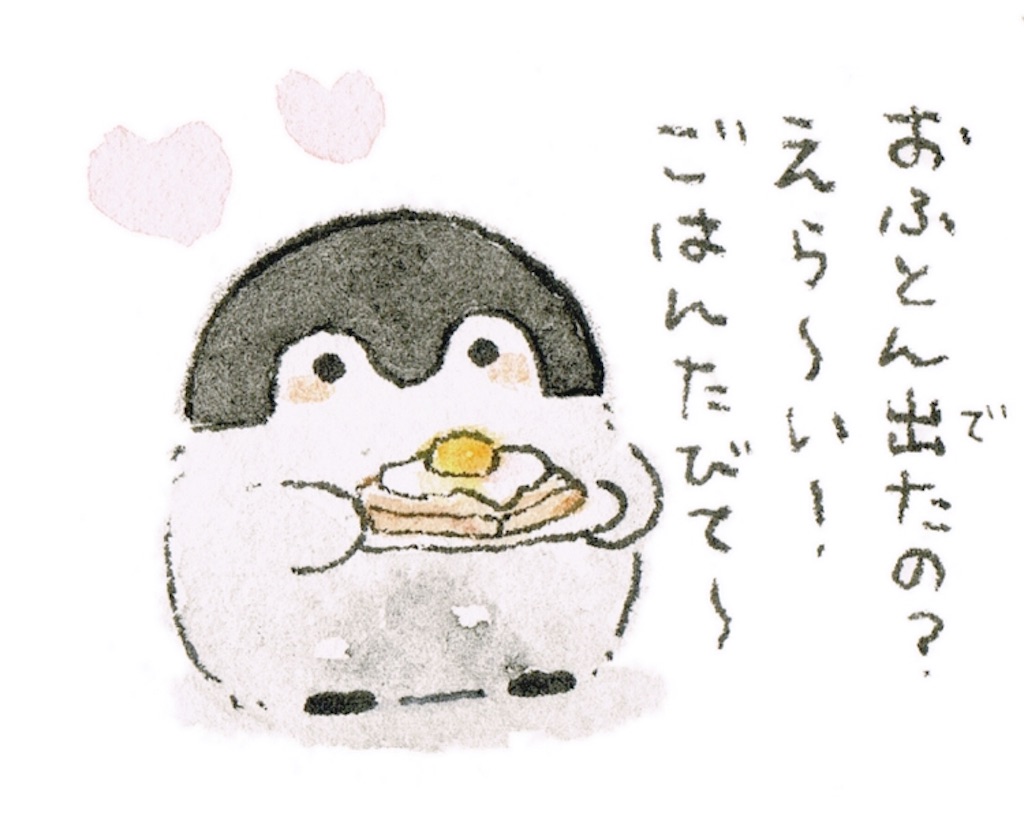 おふとん出たの?
で
えら〜い!
ごはんたびて〜